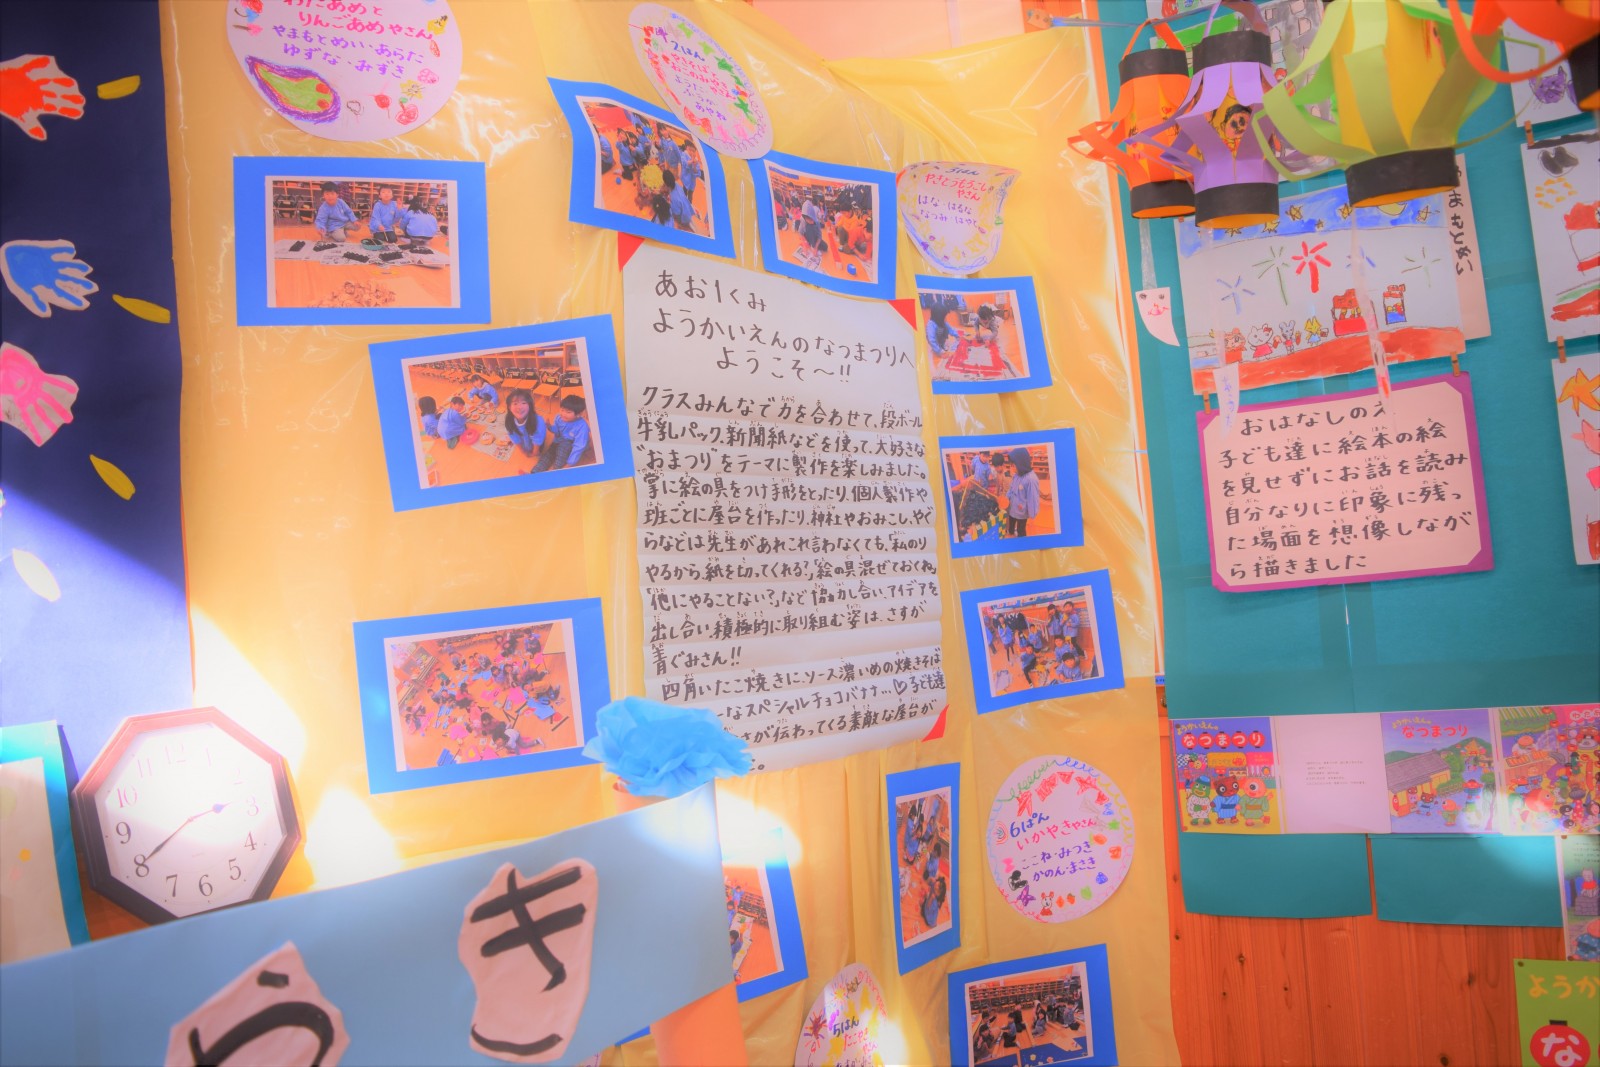 わたあめと
りんごあめやさん
やまもとめい・あらた
ゆずな・みずき
やきとうもろこし
やさん
はな・はるな
なつみ・はやと
あお1くみ
ようかいえんのなつまつりへ
ようこそ〜!!
クラスみんなで力を合わせて、段ボール
牛乳パック、新聞紙などを使って、大好きな
"おまつり"をテーマに製作を楽しみました。
掌に絵の具をつけ手形をとったり、個人製作や
班ごとに屋台を作ったり、神社やおみこし、やぐ
らなどは先生があれこれ言わなくても、「私のり
やるから、紙を切ってくれる?」「絵の具混ぜておくね」
「他にやることない?」など協力し合い、アイデアを
出し合い、積極的に取り組む姿は、さすが
青ぐみさん!!
四角いたこ焼きに、ソース濃いめの焼きそば
なスペシャルチョコバナナ…♡子ども達
さが伝わってくる素敵な屋台が
た。
おはなしのえ
子ども達に絵本の絵
を見せずにお話を読み
自分なりに印象に残っ
た場面を想像しなが
ら描きました
ようかいえんの
なつまつり
ようかいえんの
なつまつり
6ぱん
いかやきやさん
ここね・みつき
かのん・まさき
5はん
12
11
10
9
8
7
6
5
4
3
2
1
き
ら
ようか
な